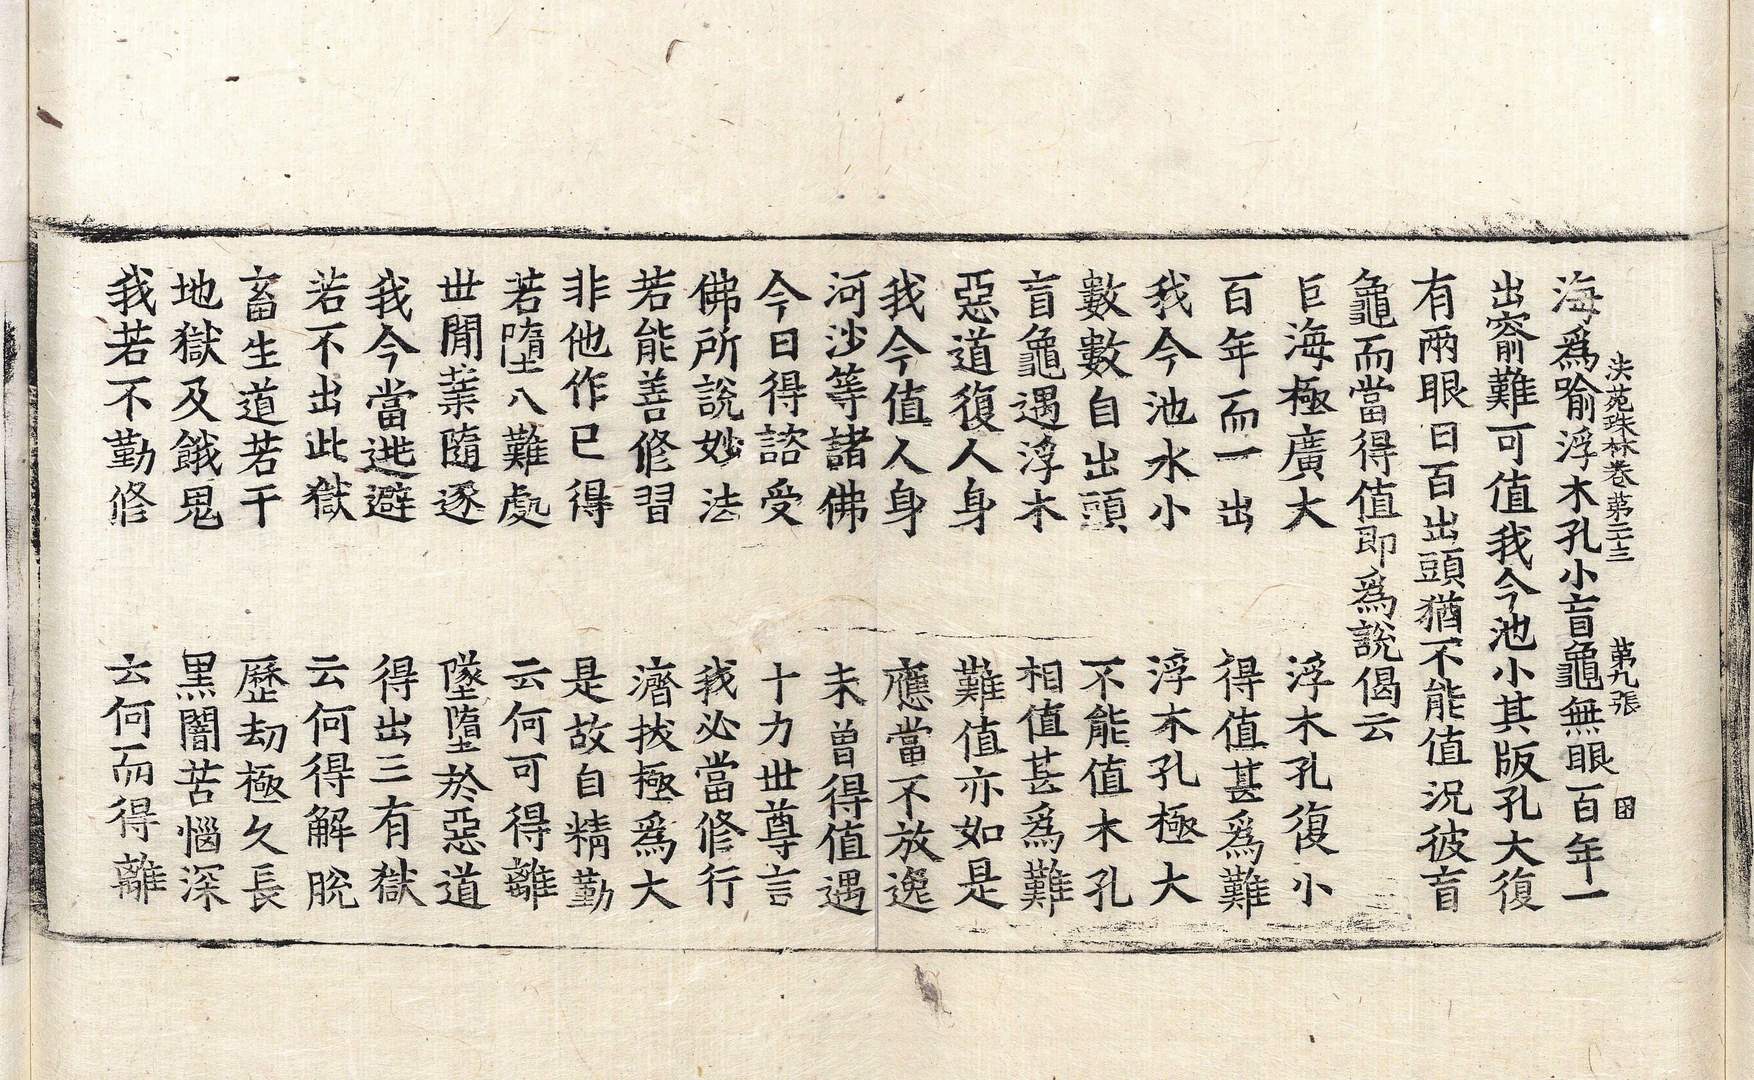 法苑珠林卷第二十三　第九張　困
海爲喻浮木孔小盲龜無眼百年一
出齋難可值我今池小其版孔大復
有兩眼日百出頭猶不能值況彼盲
龜而當得值即爲說偈云
巨海極廣大　浮木孔復小
百年而一出　得值甚爲難
我今池水小　浮木孔極大
數數自出頭　不能值木孔
盲龜遇浮木　相值甚爲難
惡道復人身　難值亦如是
我今值人身　應當不放逸
河沙等諸佛　未曾得值遇
今日得諮受　十力世尊言
佛所說妙法　我必當修行
若能善修習　濟拔極爲大
非他作已得　是故自精勤
若墮八難處　云何可得離
世間業隨逐　墜墮於惡道
我今當逃避　得出三有獄
若不出此獄　云何得解脫
畜生道若干　歷劫極久長
地獄及餓鬼　黑闇苦惱深
我若不勤修　云何而得離